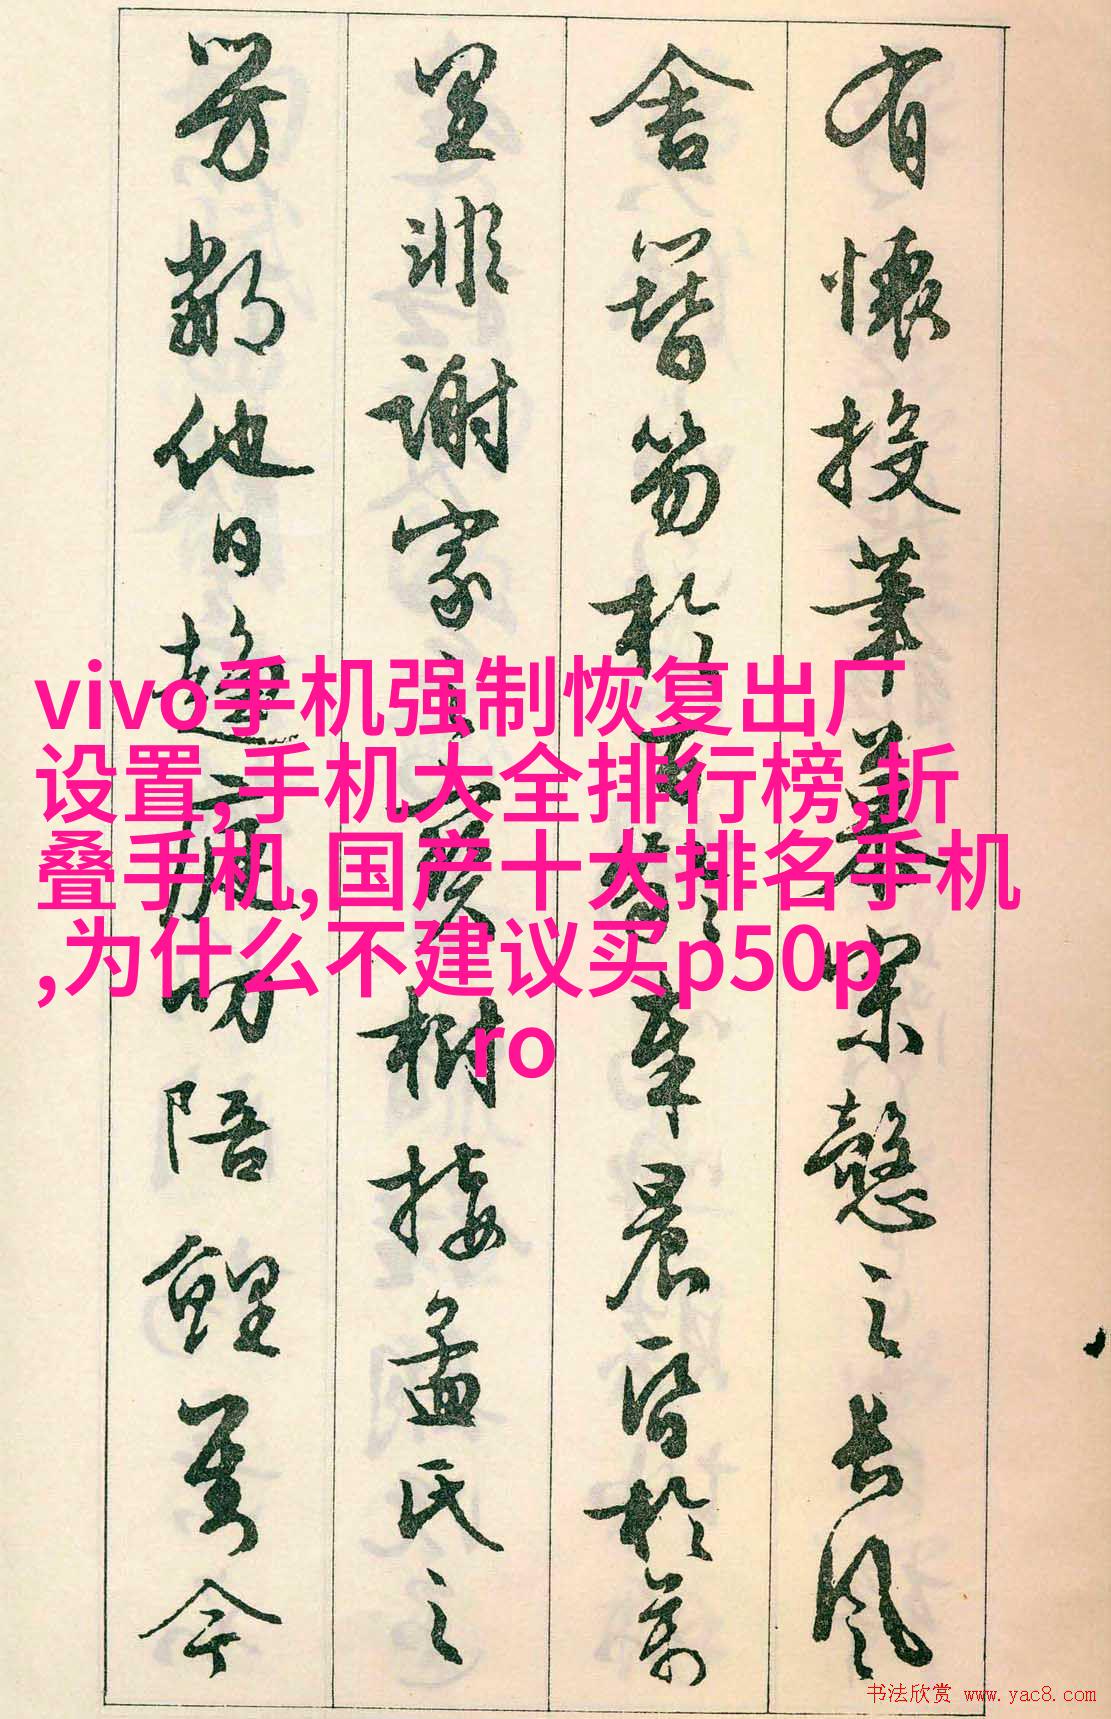 vivo手机强制恢复出厂
设置,手机大全排行榜,折
叠手机,国产十大排名手机
,为什么不建议买p50p
ro
有懷投筆慕宗慤之長風
舍簪笏於百齡奉晨昏於萬
里非謝家之寶樹接孟氏之
芳鄰他日趨庭叨陪鯉對今
书法欣赏 www.yac8.com